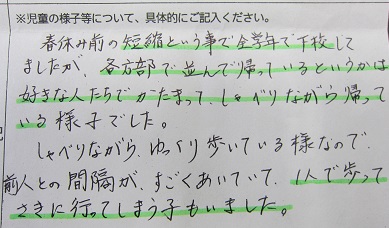 ※児童の様子等について、具体的にご記入ください。
春休み前の短縮という事で全学年で下校して
ましたが、各方部で並んで帰っているというかは
好きな人たちでかたまって、しゃべりながら帰って
いる様子でした。
しゃべりながら、ゆっくり歩いている様なので、
前人との間隔が、すごくあいていて、1人で歩って
さきに行ってしまう子もいました。